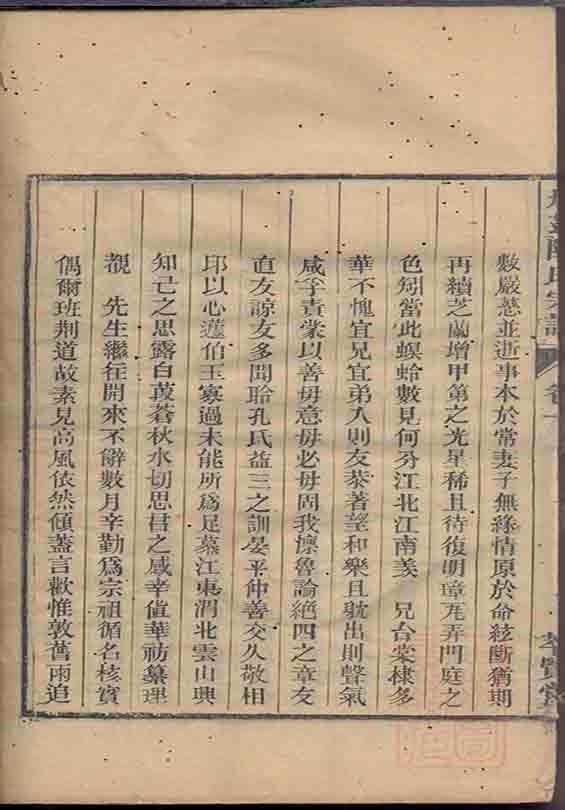 氏宗譜 卷十
萃賢堂
數嚴慈並逝事本於常妻子無緣情原於命絃斷猶期
再續芝蘭增甲第之光星稀且待復明璋瓦弄門庭之
色矧當此螟蛉數見何分江北江南羨 兄台棠棣多
華不愧宜兄宜弟入則友恭著望和樂且躭出則聲氣
咸孚責棠以善毋意毋必毋固我懔魯論絕四之章友
直友諒友多聞聆孔氏益三之訓晏平仲善交久敬相
印以心蘧伯玉寡過未能所爲足慕江東渭北雲山興
知己之思露白葭蒼秋水切思君之感幸值華祊纂理
覩 先生繼往開來不辭數月辛勤爲宗祖循名核實
偶爾班荆道故素見高風依然傾蓋言歡惟敦舊雨追